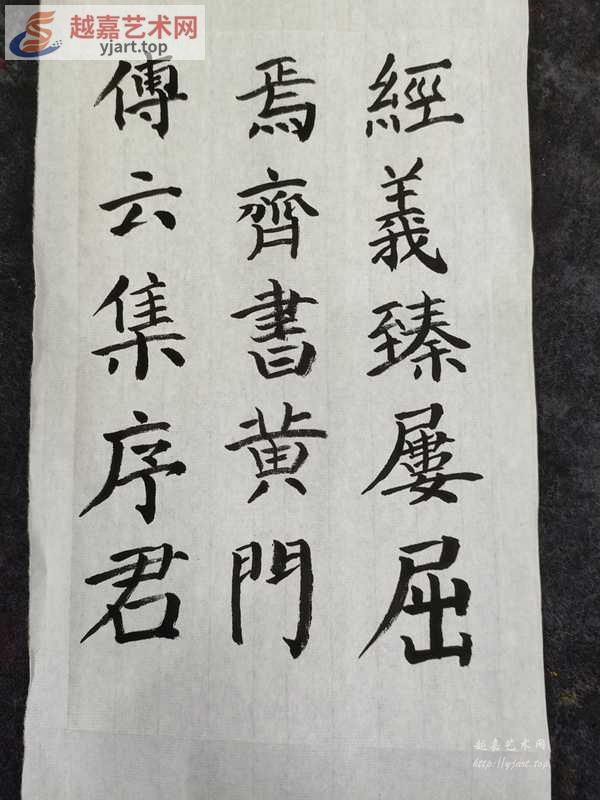 越嘉艺术网
yjart.top
經義臻屢屈
焉齊書黄門
傅云集序君
越嘉艺术网
http://yjart.top